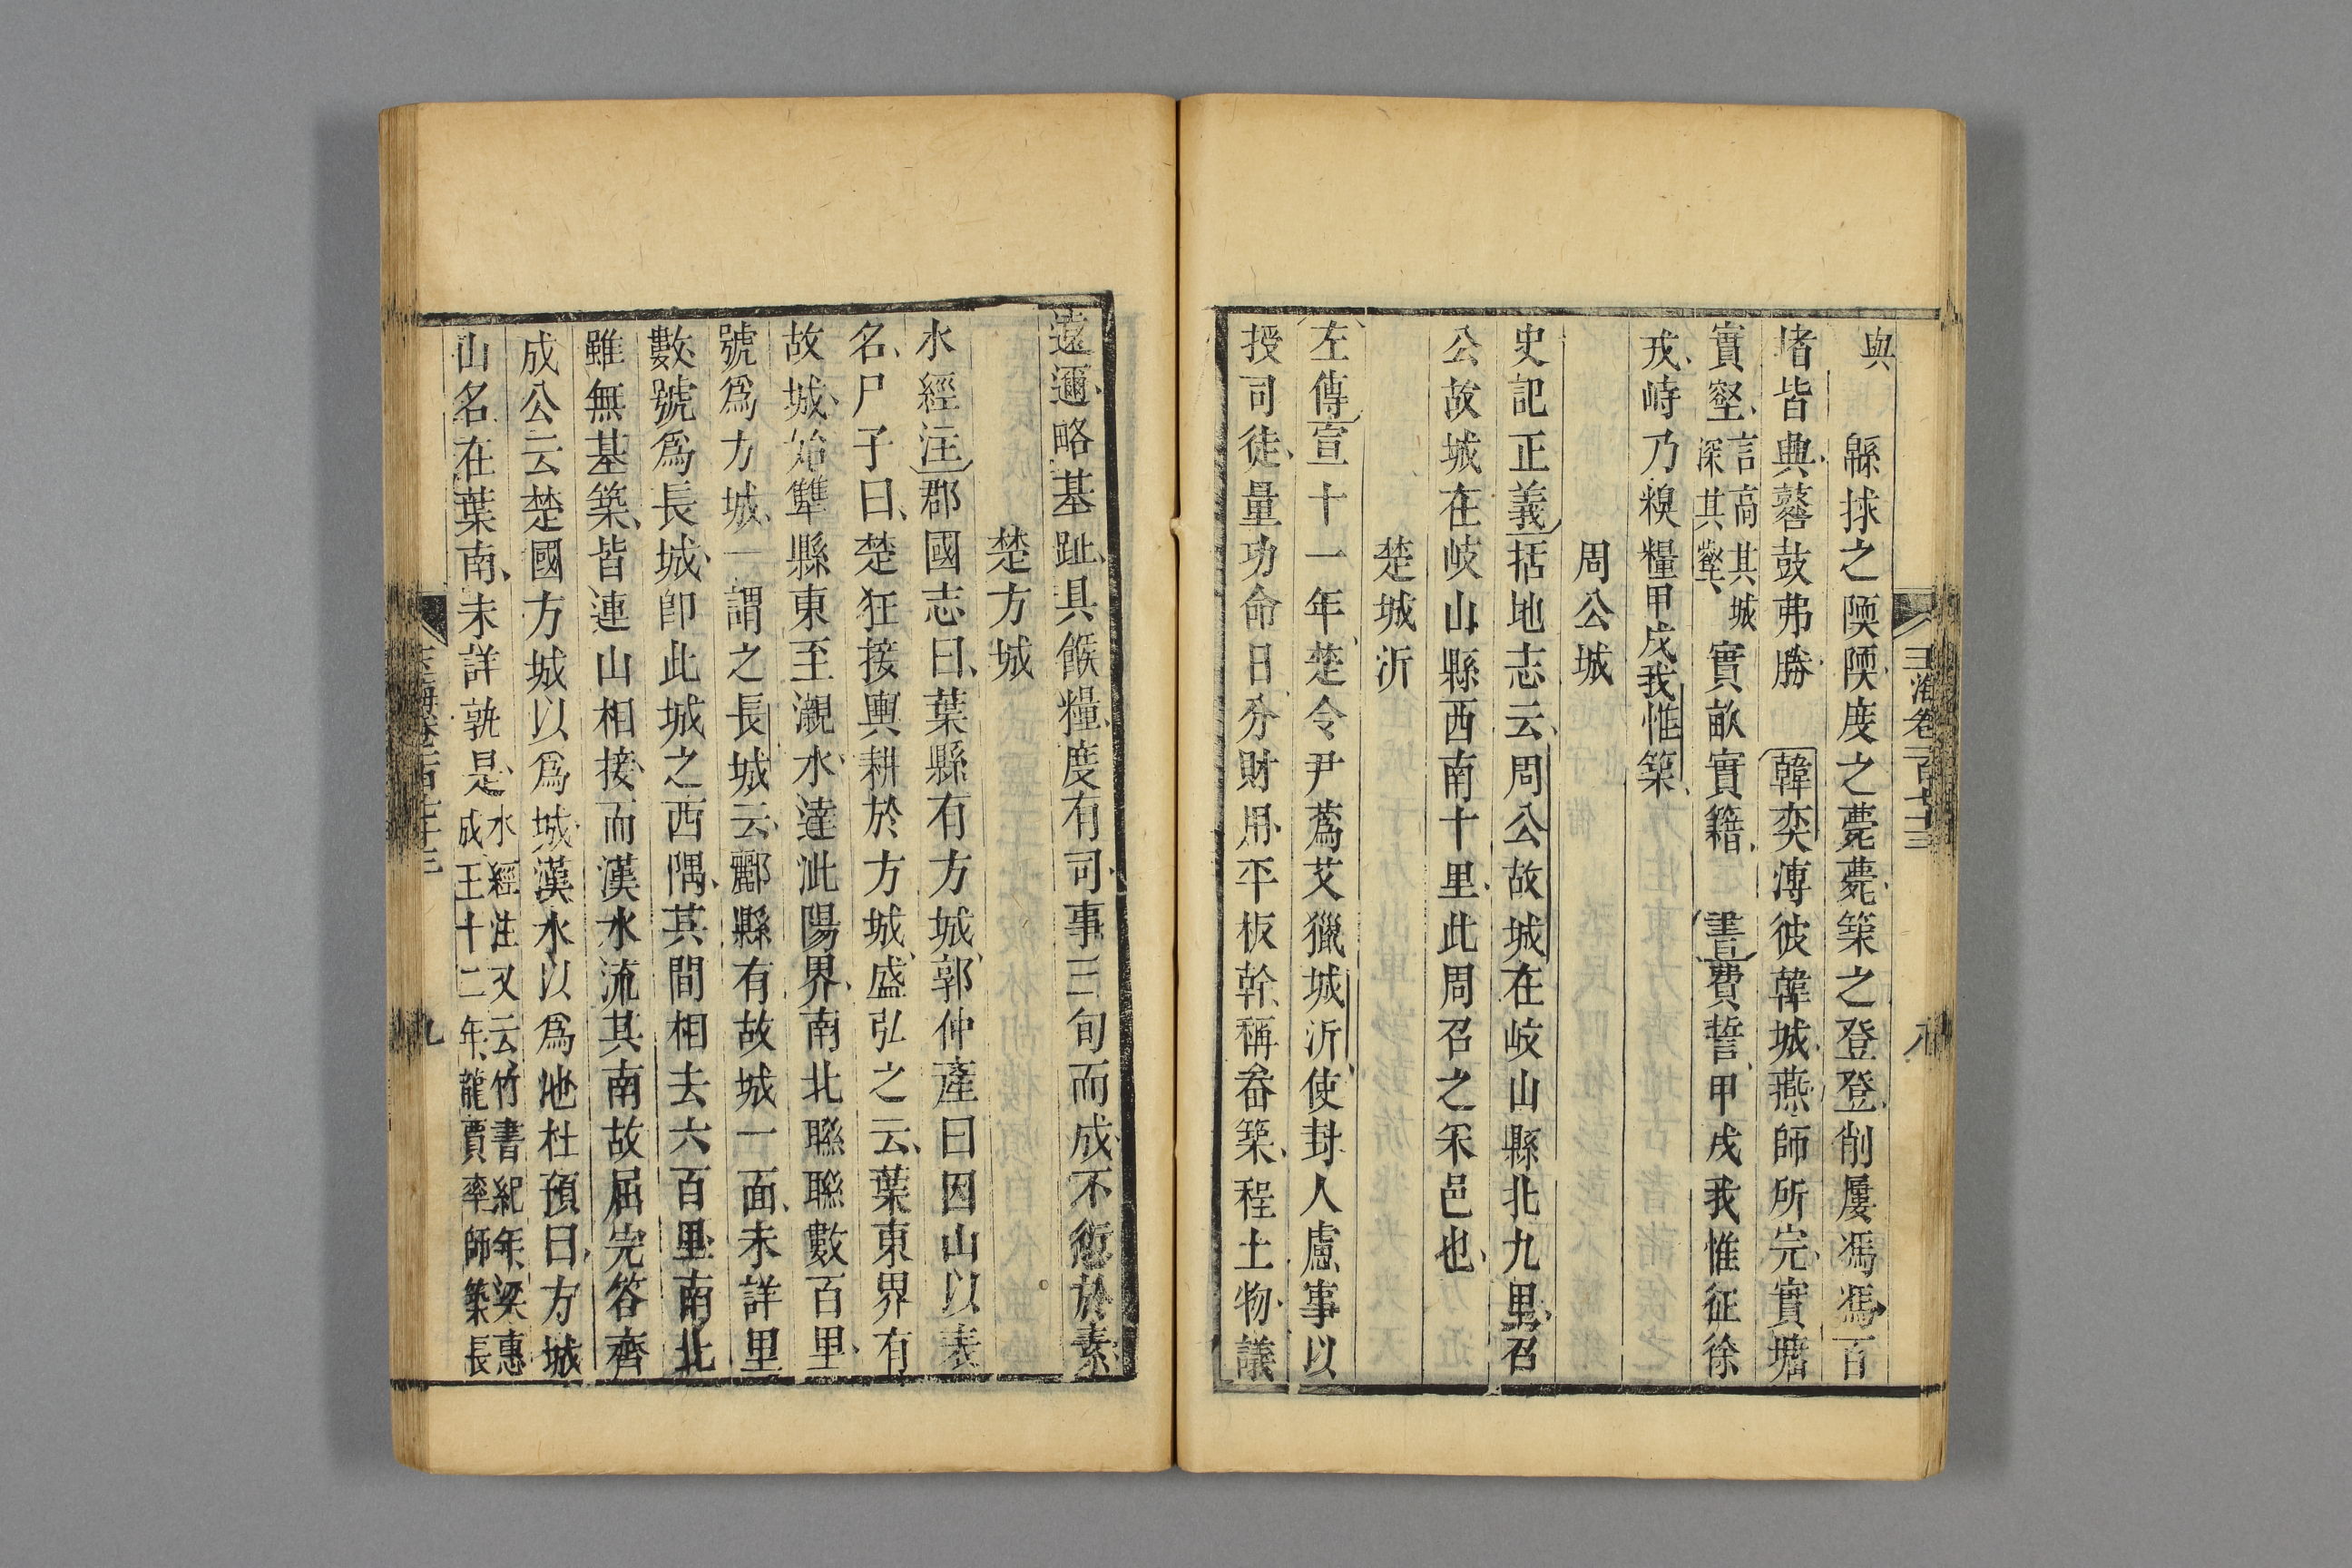 玉海卷一百七十三
八
與
緜捄之陾陾度之薨薨築之登登削屢馮馮百
堵皆興鼛鼓弗勝 韓奕溥彼韓城燕師所完實墉
實壑言高其城深其壑實畝實籍 書費誓甲戌我惟征徐
戎峙乃糗糧甲戌我惟築
周公城
史記正義括地志云周公故城在岐山縣北九里召
公故城在岐山縣西南十里此周召之采邑也
楚城沂
左傳宣十一年楚令尹蔿艾獵城沂使封人慮事以
授司徒量功命日分財用平板榦稱畚築程土物議
遠邇略基趾具餱糧度有司事三旬而成不愆於素
楚方城
水經注郡國志曰葉縣有方城郭仲產曰因山以表
名尸子曰楚狂接輿耕於方城盛弘之云葉東界有
故城始犨縣東至瀙水達泚陽界南北聯聯數百里
號爲方城一謂之長城云酈縣有故城一面未詳里
數號爲長城卽此城之西隅其間相去六百里南北
雖無基築皆連山相接而漢水流其南故屈完答齊
成公云楚國方城以爲城漢水以爲池杜預曰方城
山名在葉南未詳孰是水經注又云竹書紀年梁惠成王十二年龍賈率師築長
玉海卷一百七十三
九